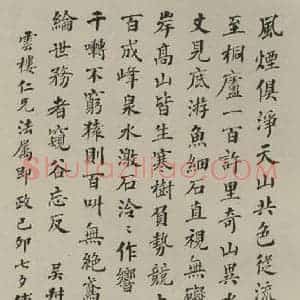 風煙俱淨天山共色從流
至桐廬一百許里奇山異水
丈見底游魚細石直視無礙
岸高山皆生寒樹負勢競
百成峰泉水激石泠〻作響
千囀不窮猿則百叫無絕鳶
綸世務者窺谷忘反 吳
雲樓仁兄法屬即政 己卯七夕
Shufaziliao.com